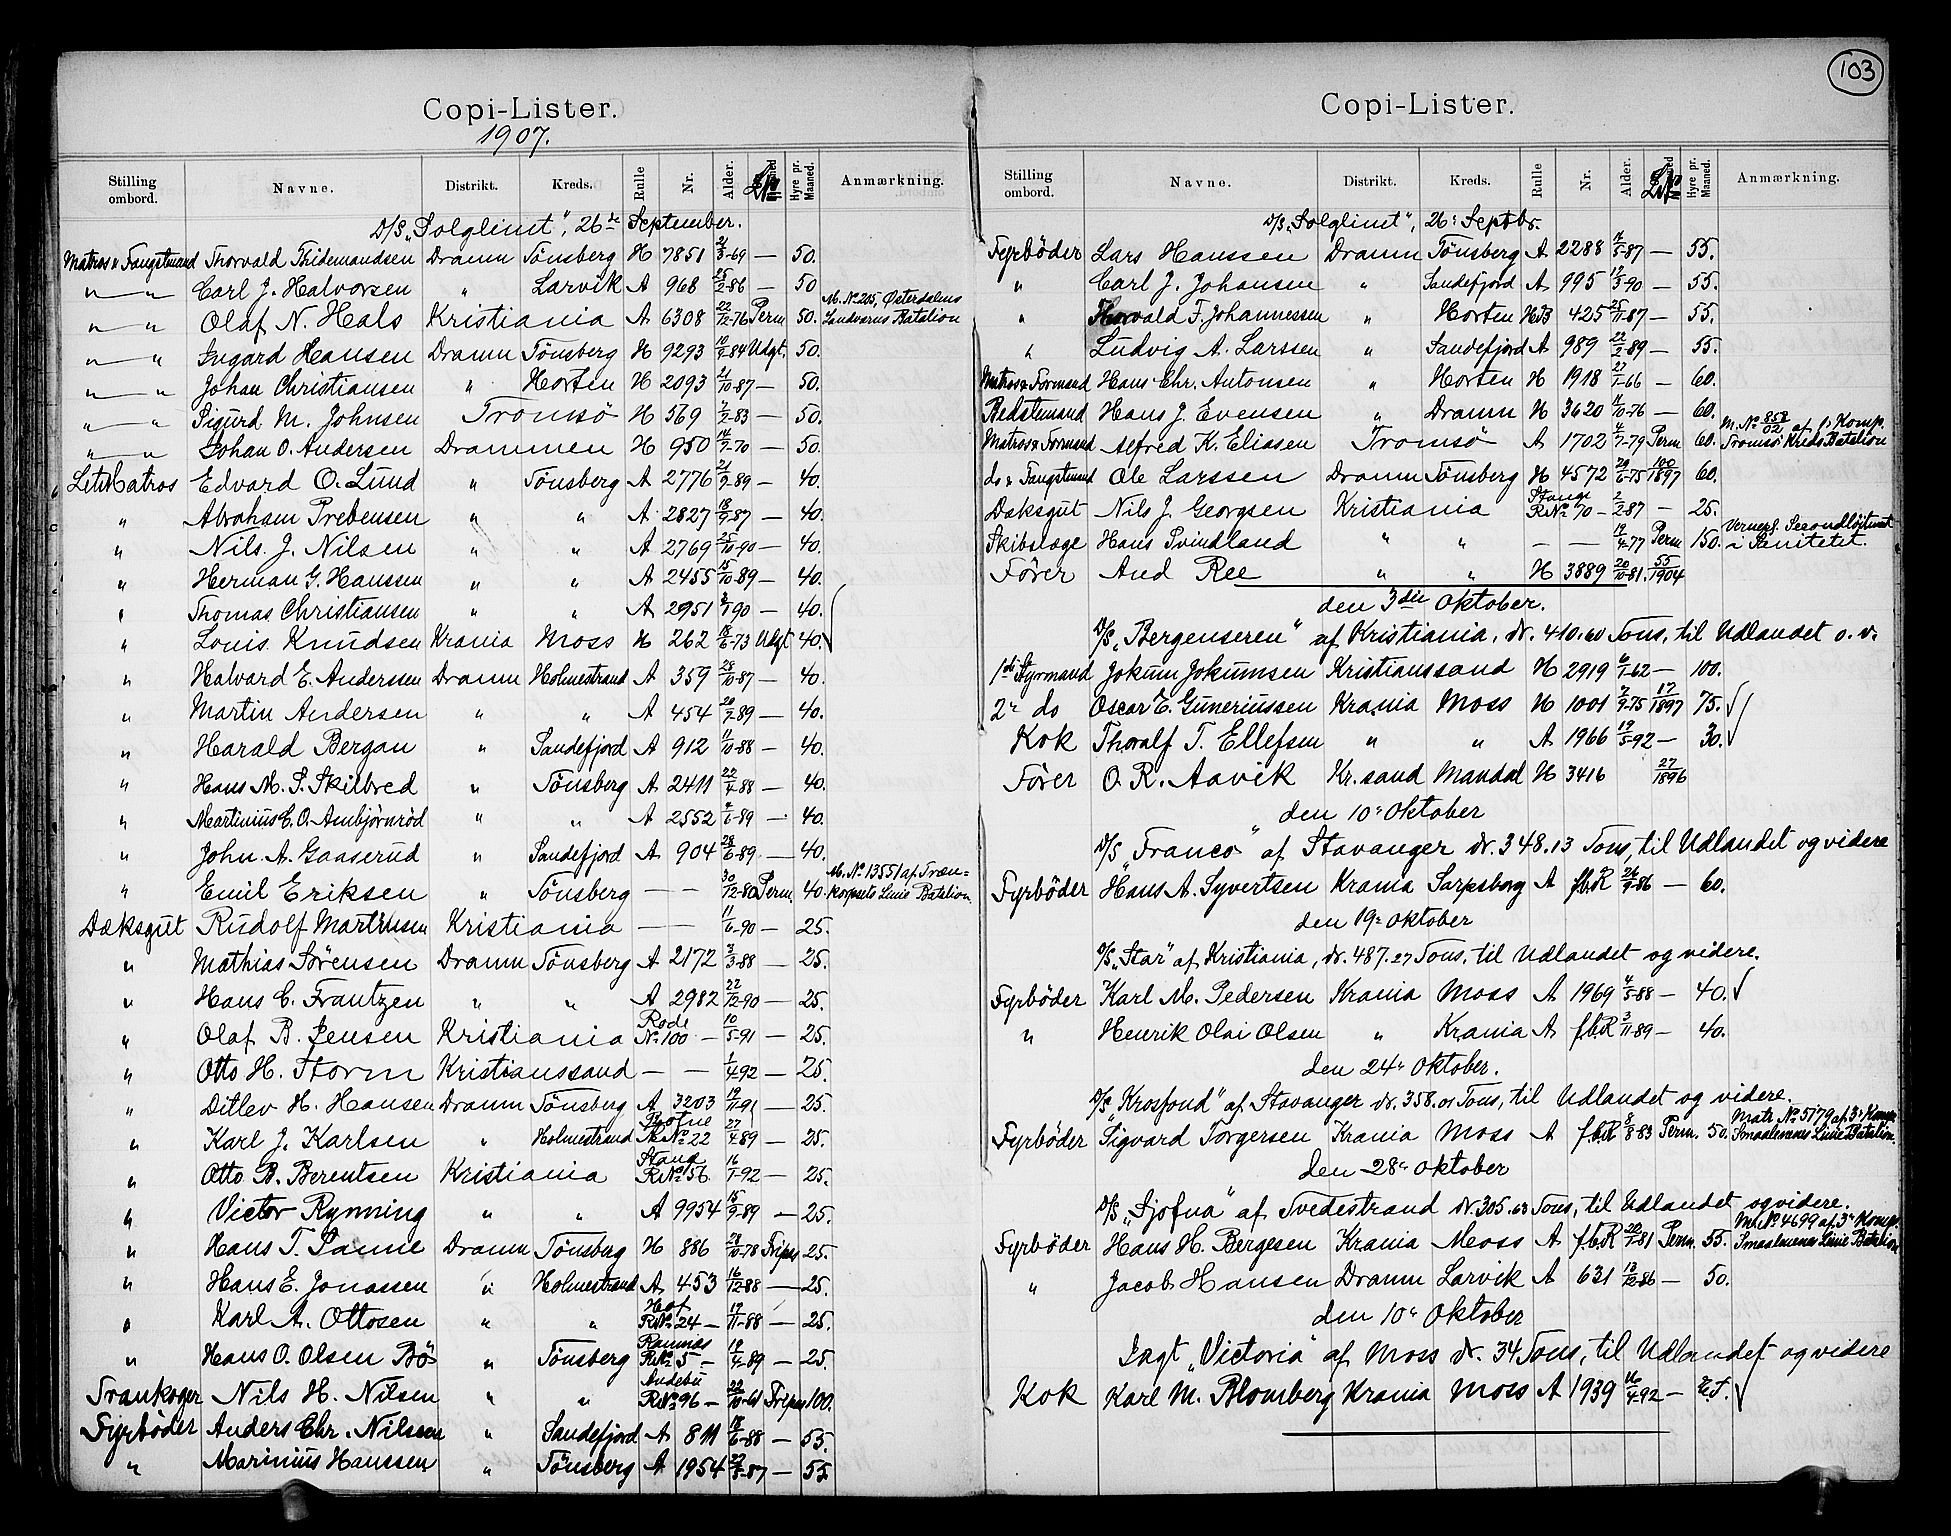 103
Copi-Lister.
1907.
Stilling ombord. Navne. Distrikt. Kreds. Rulle Nr. Alder. Hyre pr. Maaned. Anmærkning.
D/S „Solglimt", 26de September.
Matros & Fangstmand Thorvald Thidemandsen Dramn Tönsberg H 7851 21/3-69 — 50.
" — " Carl J. Halvorsen " Larvik A 968 25/2-86 — 50
" — " Olaf N. Hals Kristiania A 6308 22/12-76 Perm 50. M. No 205, Østerdalens Landværns Batalion
" — " Ingard Hansen Dramn Tönsberg H 9293 10/9-84 Udgt. 50.
" — " Johan Christiansen " Horten H 2093 21/10-87 — 50.
" — " Sigurd M. Johnsen Tromsö H 569 2-83 — 50.
" — " Johan O. Andersen Drammen H 950 14/9-70 — 50.
Letmatros Edvard O. Lund " Tönsberg A 2776 21/9-89 — 40.
" Abraham Prebensen " " A 2827 18/9-87 — 40.
" Nils. J. Nilsen " " A 2769 25/10-90 — 40.
" Herman G. Hanssen " " A 2455 15/10-89 — 40.
" Thomas Christiansen " " A 2951 90 — 40.
" Louis Knudsen Krania Moss H 262 6-73 Udgt 40.
" Halvard E. Anderssen Dramn Holmestrand A 359 28/10-87 — 40.
" Martin Andersen " " A 454 20/9-89 — 40.
" Harald Bergan " Sandefjord A 912 11/10-88 — 40.
" Hans M. S. Skilbred " Tönsberg A 2411 22/4-88 — 40.
" Martinius C. O. Ambjörnröd " " A 2552 6-89 — 40.
" John A. Gaaserud " Sandefjord A 904 28/6-89 — 40.
" Emil Eriksen " Tönsberg — — 30/12-80 Perm. 40 M. No 13551 af Træn-korpsets Linie Batalion.
Dæksgut Rudolf Martinsen Kristiania — — 11/6-90 — 25.
" Mathias Sörensen Dramn Tönsberg A 2172 3/3-88 — 25.
" Hans C. Frantzen " " A 2982 22/12-90 — 25.
" Olaf B. Jensen Kristiania Rode No 100 — 10/5-91 — 25.
" Otto H. Storm Kristianssand — — 1/4 92 — 25.
" Ditlev H. Hansen Dramn Tönsberg A 3203 12/11-91 — 25.
" Karl J. Karlsen " Holmestrand No 22 27/4 89 — 25.
" Otto B. Berentsen Kristiania Stang R.No 56 16/1-92 — 25.
" Victor Rynning " " A 9954 15/9-89 — 25.
" Hans T. Sanne Dramn Tönsberg H 886 28/10-78 Fripas 25.
" Hans E. Jonassen " Holmestrand A 453 16/12-88 — 25.
" Karl A. Ottosen " " Hof R.No 24 — 17/11-88 — 25.
" Hans O. Olsen Bö " Tönsberg Ramnæs R.No 5 — 19/4-89 — 25.
Trankoger Nils H. Nilsen " " Andebu R.No 96 — 22/10-61 Fripas 100.
Fyrböder Anders Chr. Nilssen " Sandefjord A 811 18/6-88 — 55.
" Marinius Hanssen " Tönsberg A 1954 22/8-87 — 55
Copi-Lister.
Stilling ombord. Navne. Distrikt. Kreds. Rulle Nr. Alder. Hyre pr. Maaned. Anmærkning.
D/S. „Solglimt", 26: Septbr.
Fyrböder Lars Hanssen Dramn Tönsberg A 2288 5-87 — 55.
" Carl J. Johansen " Sandefjord A 995 12/3-90 — 55.
" Horvald F. Johannessen " Horten HB 425 25/11-87 — 55.
" Ludvig A. Larssen " Sandefjord A 989 22/2-89 — 55.
Matros & Formand Hans Chr. Antonsen " Horten H 1918 27/1-66 — 60.
Bedstemand Hans J. Evensen " Dramn H 3620 10-76 — 60.
Matros & Formand Alfred K. Eliasen Tromsö A 1702 4/7-79 Perm 60. M. No 858/02 af 1: Komp. Tromsö Kreds Batalion
do & Fangstmand Ole Larssen Dramn Tönsberg H 4572 20/6-75 100/1897 60.
Dæksgut Nils J. Georgsen Kristiania Stange R.No 70 — 2/2-87 — 25.
Skibslæge Hans Svindland " " — — 19/4-77 Perm 150. Vernepl. Secondlöitnant i Sanitetet.
Förer And Ree " " H 3889 20/10-81. 55/1904
den 3die Oktober.
D/S „Bergenseren" af Kristiania, dr. 410.60 Tons, til Udlandet o. v.
1ste Styrmand Jokum Jokumsen Kristianssand H 2919 6/1-62 — 100.
2: do Oscar E. Guneriussen Krania Moss H 1001 9-75 17/1897 75.
Kok Thoralf T. Ellefsen " " A 1966 19/5-92 — 30.
Förer O. R. Aavik Kr.sand Mandal H 3416 27/1896
den 10: Oktober
D/S „Franco" af Stavanger dr. 348.13 Tons, til Udlandet og videre
Fyrböder Hans A. Syvertsen Krania Sarpsborg A f.b.R 26/9-86 — 60.
den 19: Oktober
D/S „Star" af Kristiania, dr. 487.27 Tons, til Udlandet og videre.
Fyrböder Karl M. Pedersen Krania Moss A 1969 5-88 — 40.
" Henrik Olai Olsen " Krania A f.b.R 3/11-89 — 40.
den 24: Oktober.
D/S „Krosfond" af Stavanger dr. 358.01 Tons, til Udlandet og videre.
Fyrböder Sigvard Torgersen Krania Moss A f.b.R 8/8-83 Perm. 50. Matr. No 5179 af 3: Komp. Smaalenenes Linie Batalion
den 28: Oktober
D/S „Sjofna" af Tvedestrand dr. 305.63 Tons, til Udlandet og videre.
Fyrböder Hans H. Bergesen Krania Moss A f.b.R 81 Perm. 55. M. No 4699 af 3: Komp. Smaalenenes Linie Batalion
" Jacob Hansen Dramn Larvik A 631 13/12-86 — 50.
den 10: Oktober
Jagt „Victoria" af Moss dr. 34 Tons, til Udlandet og videre
Kok Karl M. Blomberg Krania Moss A 1939 16/4-92 —